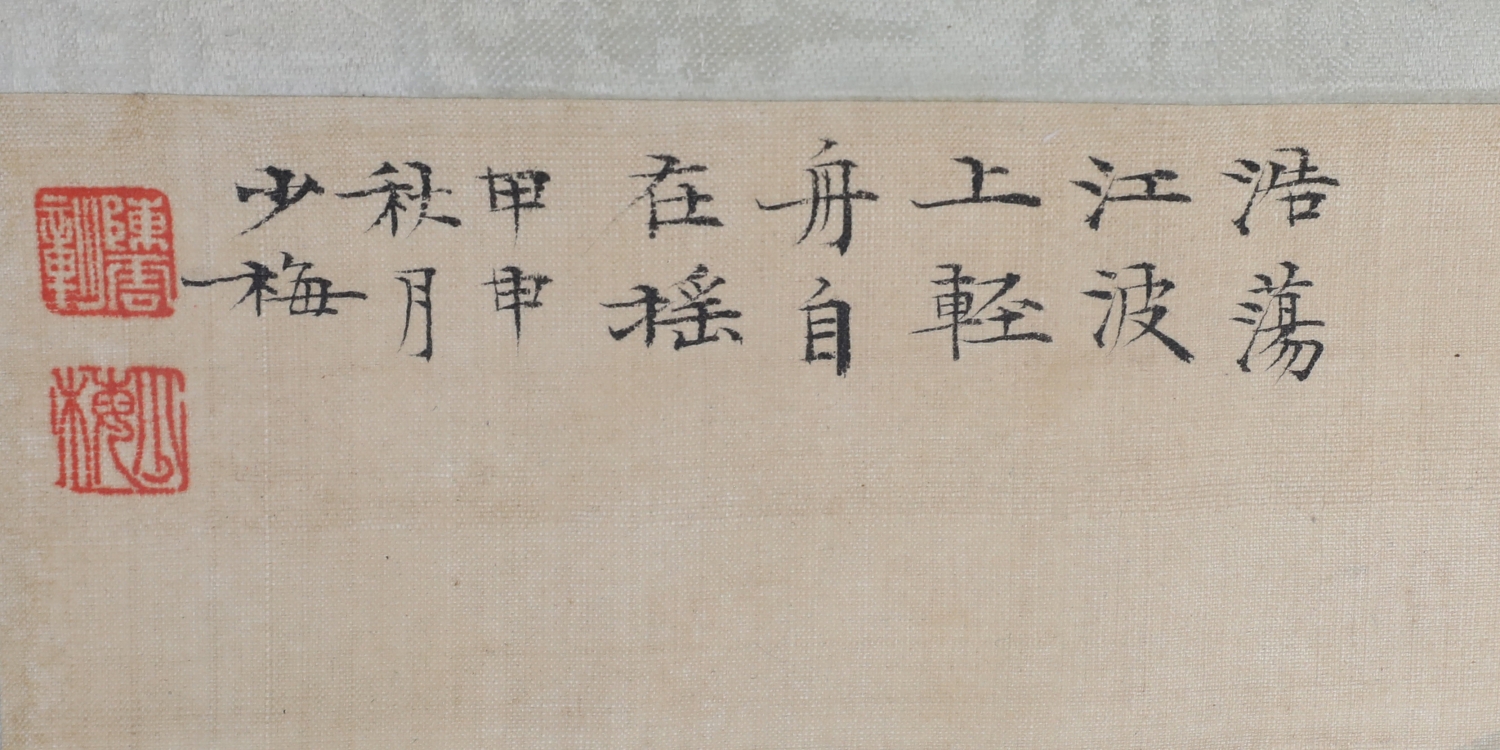 浩蕩
江波
上輕
舟自
在搖
甲申
秋月
少梅
陳雲彰
少梅